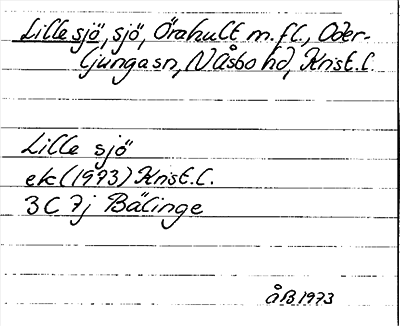 Lille sjö, sjö, Örahult m.fl., Oder-
ljunga sn, N Åsbo hd, Krist.l.
Lille sjö
ek (1973) Krist.l.
3C 7j Bälinge
ÅB 1973